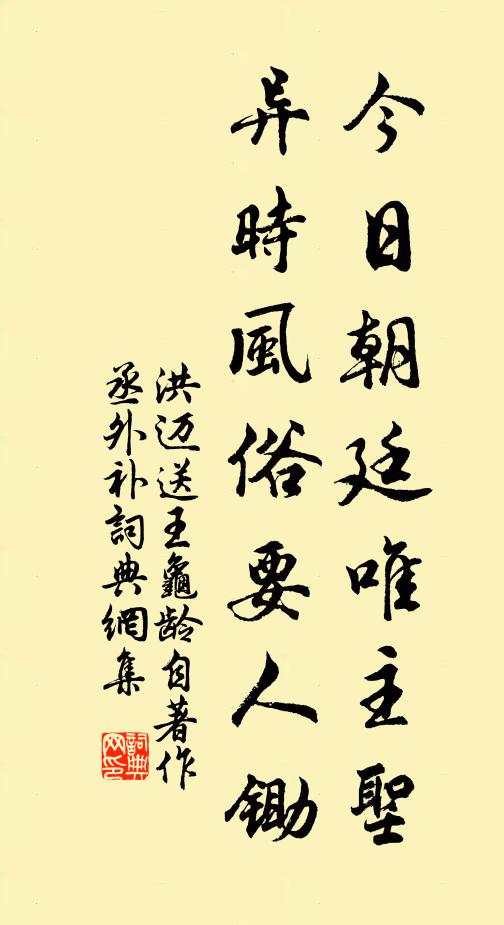 今日朝廷唯主聖
异時風俗要人鋤
洪迈送王龜龄自著作
丞外补詞典網集
詞典网印